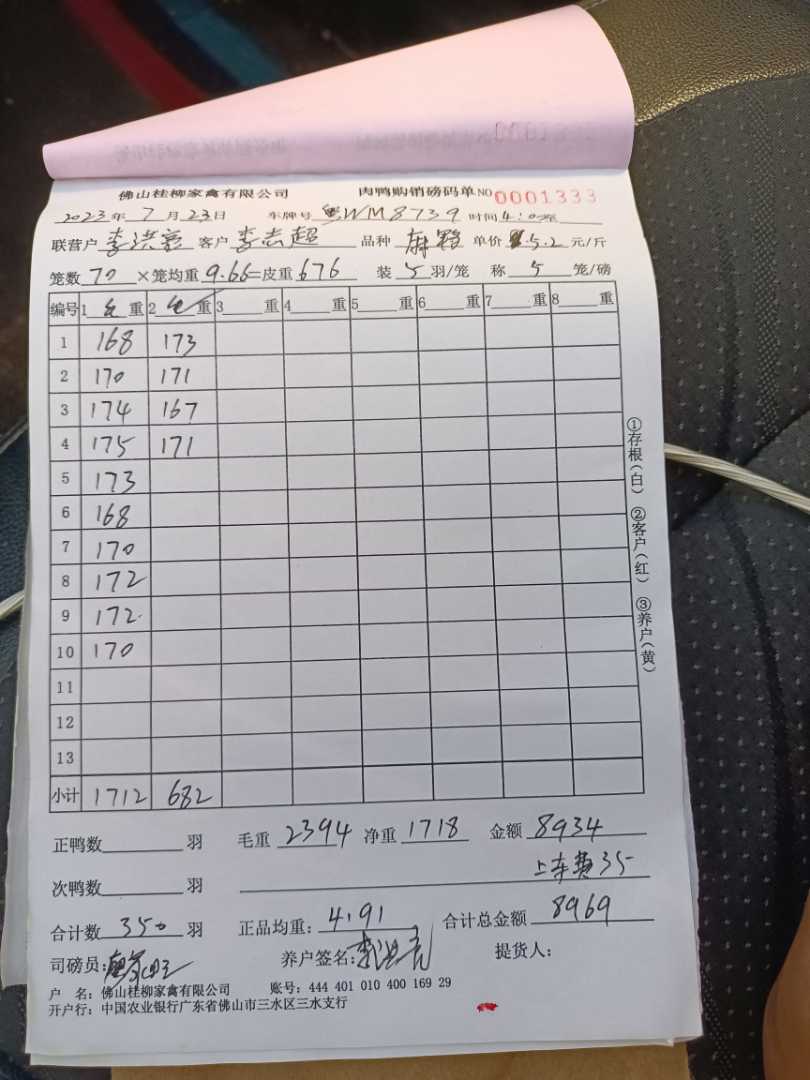 佛山桂柳家禽有限公司 肉鸭购销磅码单 NO 0001333
2023年 7月 23日 车牌号 WM8739 时间 4:0
联营户 李洪亮 客户 李志超 品种 麻鸭 单价 5.2 元/斤
笼数 70 ×笼均重 9.66=皮重 676 装 5 羽/笼 称 5 笼/磅
编号 1 毛 重 2 毛 重 3 重 4 重 5 重 6 重 7 重 8 重
1 168 173
2 170 171
3 174 167
4 175 171
5 173
6 168
7 170
8 172
9 172
10 170
11
12
13
小计 1712 682
①存根(白) ②客户(红) ③养户(黄)
正鸭数 羽 毛重 2394 净重 1718 金额 8934
次鸭数 羽 上车费35
合计数 350 羽 正品均重: 4.91 合计总金额 8969
司磅员: 养户签名: 李洪亮 提货人:
户 名: 佛山桂柳家禽有限公司 账号: 444 401 010 400 169 29
开户行: 中国农业银行广东省佛山市三水区三水支行